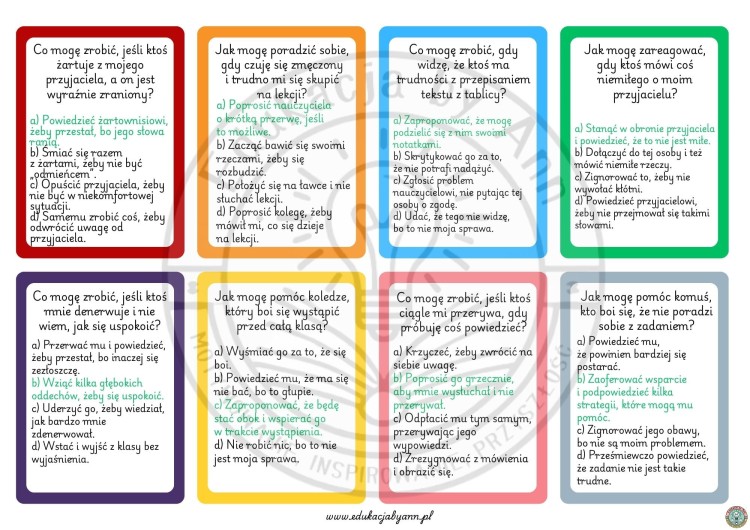 Co mogę zrobić, jeśli ktoś
żartuje z mojego
przyjaciela, a on jest
wyraźnie zraniony?
a) Powiedzieć żartownisiowi,
żeby przestał, bo jego słowa
ranią.
b) Śmiać się razem
z żartami, żeby nie być
„odmieńcem”.
c) Opuścić przyjaciela, żeby
nie być w niekomfortowej
sytuacji.
d) Samemu zrobić coś, żeby
odwrócić uwagę od
przyjaciela.
Jak mogę poradzić sobie,
gdy czuję się zmęczony
i trudno mi się skupić
na lekcji?
a) Poprosić nauczyciela
o krótką przerwę, jeśli
to możliwe.
b) Zacząć bawić się swoimi
rzeczami, żeby się
rozbudzić.
c) Położyć się na ławce i nie
słuchać lekcji.
d) Poprosić kolegę, żeby
mówił mi, co się dzieje
na lekcji.
Co mogę zrobić, gdy
widzę, że ktoś ma
trudności z przepisaniem
tekstu z tablicy?
a) Zaproponować, że mogę
podzielić się z nim swoimi
notatkami.
b) Skrytykować go za to,
że nie potrafi nadążyć.
c) Zgłosić problem
nauczycielowi, nie pytając tej
osoby o zgodę.
d) Udać, że tego nie widzę,
bo to nie moja sprawa.
Jak mogę zareagować,
gdy ktoś mówi coś
niemiłego o moim
przyjacielu?
a) Stanąć w obronie przyjaciela
i powiedzieć, że to nie jest miłe.
b) Dołączyć do tej osoby i też
mówić niemiłe rzeczy.
c) Zignorować to, żeby nie
wywołać kłótni.
d) Powiedzieć przyjacielowi,
żeby nie przejmował się takimi
słowami.
Co mogę zrobić, jeśli ktoś
mnie denerwuje i nie
wiem, jak się uspokoić?
a) Przerwać mu i powiedzieć,
żeby przestał, bo inaczej się
zezłoszczę.
b) Wziąć kilka głębokich
oddechów, żeby się uspokoić.
c) Uderzyć go, żeby wiedział,
jak bardzo mnie
zdenerwował.
d) Wstać i wyjść z klasy bez
wyjaśnienia.
Jak mogę pomóc koledze,
który boi się wystąpić
przed całą klasą?
a) Wyśmiać go za to, że się
boi.
b) Powiedzieć mu, że ma się
nie bać, bo to głupie.
c) Zaproponować, że będę
stać obok i wspierać go
w trakcie wystąpienia.
d) Nie robić nic, bo to nie
jest moja sprawa.
Co mogę zrobić, jeśli ktoś
ciągle mi przerywa, gdy
próbuję coś powiedzieć?
a) Krzyczeć, żeby zwrócić na
siebie uwagę.
b) Poprosić go grzecznie,
aby mnie wysłuchał i nie
przerywał.
c) Odpłacić mu tym samym,
przerywając jego
wypowiedzi.
d) Zrezygnować z mówienia
i obrazić się.
Jak mogę pomóc komuś,
kto boi się, że nie poradzi
sobie z zadaniem?
a) Powiedzieć mu,
że powinien bardziej się
postarać.
b) Zaoferować wsparcie
i podpowiedzieć kilka
strategii, które mogą mu
pomóc.
c) Zignorować jego obawy,
bo nie są moim problemem.
d) Prześmiewczo powiedzieć,
że zadanie nie jest takie
trudne.
www.edukacjabyann.pl
Edukacja by Ann
INSPIROWAĆ
PRZYSZŁOŚĆ